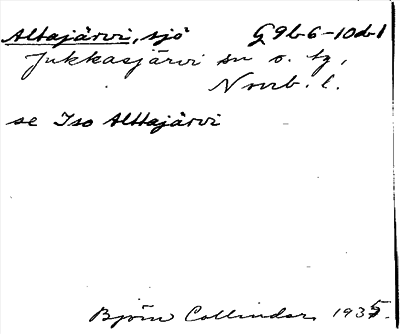 Altajärvi, sjö G9b6-10d1
Jukkasjärvi sn o. tg,
Norrb. l.
se Iso Alttajärvi
Björn Collinder 1935.